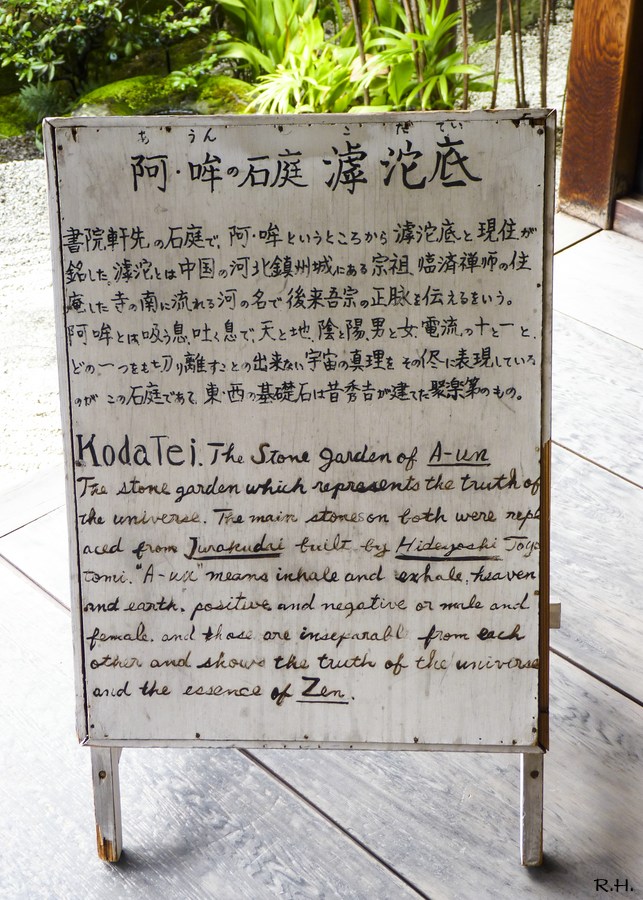 あ うん こ だ てい
阿・吽の石庭 滹沱底
書院軒先の石庭で、阿・吽というところから滹沱底と現住が
銘した。滹沱とは中国の河北鎮州城にある宗祖臨済禅師の住
庵した寺の南に流れる河の名で後来吾宗の正脉を伝えるをいう。
阿吽とは吸う息、吐く息で、天と地、陰と陽、男と女、電流の十と一と、
どの一つをも切り離すことの出来ない宇宙の真理をその侭に表現している
のがこの石庭であて、東・西の基礎石は昔秀吉が建てた聚楽第のもの。
KodaTei. The Stone garden of A-un
The stone garden which represents the truth of
the universe. The main stones on both were repl
aced from Jurakudai built by Hideyoshi Toyo
tomi. "A-un" means inhale and exhale, heaven
and earth, positive and negative or male and
female, and those are inseparabl from each
other and shows the truth of the universe
and the essence of Zen.
R.H.